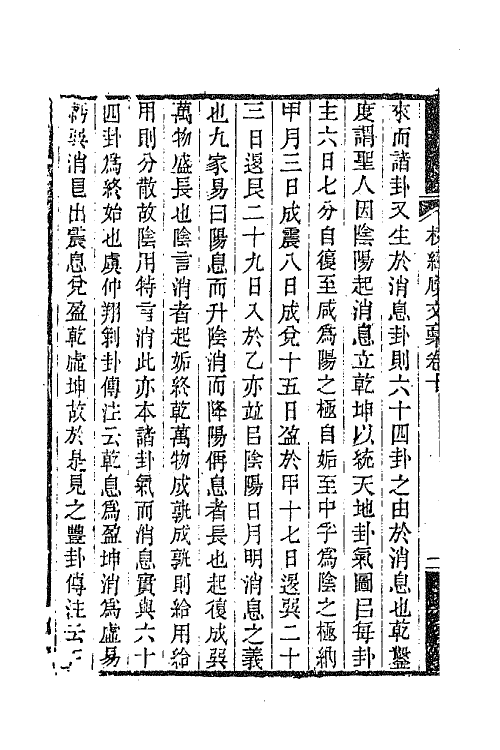 校經廎文稾卷十
二
來而諸卦又生於消息卦則六十四卦之由於消息也乾鑿
度謂聖人因陰陽起消息立乾坤以統天地卦氣圖㠯每卦
主六日七分自復至咸爲陽之極自姤至中孚爲陰之極納
甲月三日成震八日成兌十五日盈於甲十七日退巽二十
三日退艮二十九日入於乙亦竝㠯陰陽日月明消息之義
也九家易曰陽息而升陰消而降陽偁息者長也起復成巽
萬物盛長也陰言消者起姤終乾萬物成孰成孰則給用給
用則分散故陰用特言消此亦本諸卦氣而消息實與六十
四卦爲終始也虞仲翔剝卦傳注云乾息爲盈坤消爲虛易
虧巽消艮出震息兌盈乾虛坤故於是見之豐卦傳注云